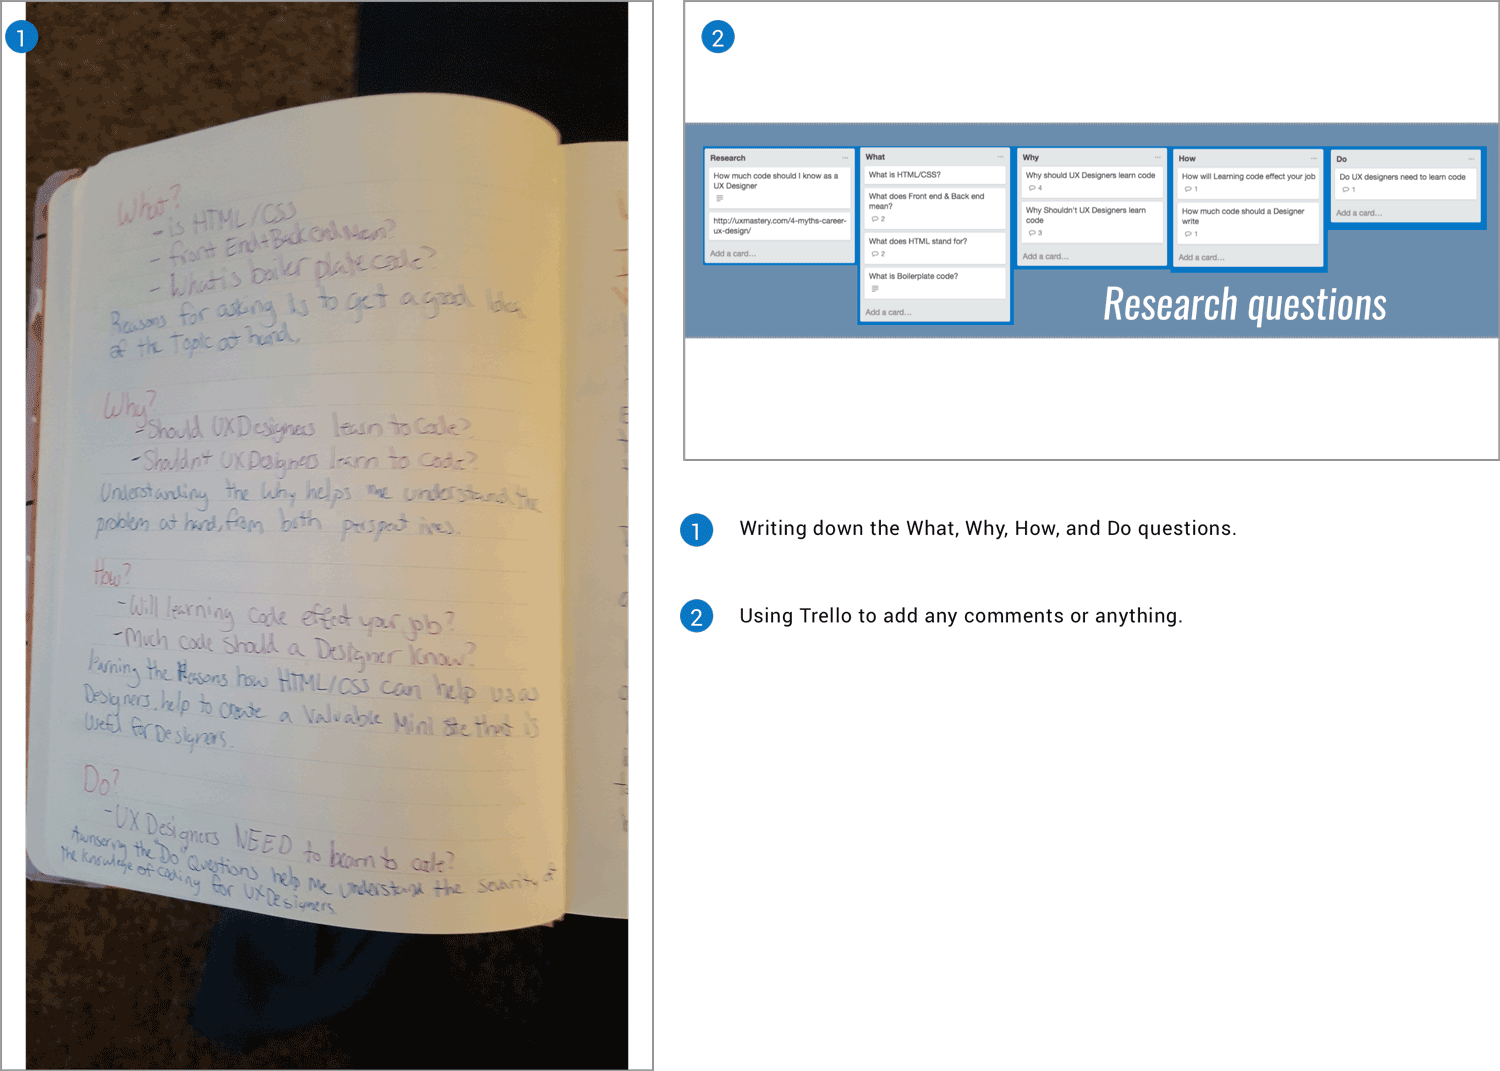 1
What?
- is HTML/CSS
- front End + Back end Mean?
- What is boiler plate code?
Reasons for asking Is to get a good Idea
of the Topic at hand,
Why?
- Should UX Designers learn to Code?
- Shouldn't UX Designers learn to Code?
Understanding the Why helps me understand the
problem at hand, from both perspectives.
How?
- Will learning code effect your job?
- Much code should a Designer Know?
learning the Reasons how HTML/CSS can help us as
Designers, help to create a Valuable Mini Site that is
Useful for Designers.
Do?
- UX Designers NEED to learn to code?
Awnsering the "Do" Questions help me understand the severity of
the Knowlege of Coding for UX Designers
2
Research
How much code should I know as a
UX Designer
http://uxmastery.com/4-myths-career-
ux-design/
Add a card...
What
What is HTML/CSS?
What does Front end & Back end
mean?
2
What does HTML stand for?
2
What is Boilerplate code?
Add a card...
Why
Why should UX Designers learn code
4
Why Shouldn't UX Designers learn
code
3
Add a card...
How
How will Learning code effect your job
1
How much code should a Designer
write
1
Add a card...
Do
Do UX designers need to learn code
1
Add a card...
Research questions
1 Writing down the What, Why, How, and Do questions.
2 Using Trello to add any comments or anything.